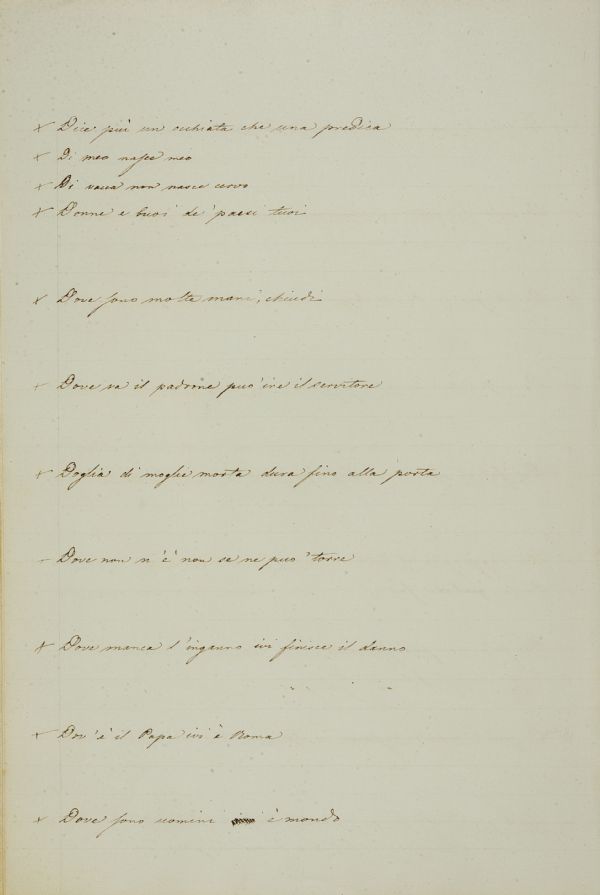 × Dice più un ochiata che una predica
× Di meo nasce meo
× Di vacca non nasce cervo
× Donne e buoi de' paesi tuoi
× Dove sono molte mani, chiudi
× Dove va il padrone può ire il servitore
× Doglia di moglie morta dura fino alla porta
– Dove non n'è non se ne può torre
× Dove manca l'inganno ivi finisce il danno
× Dov'è il Papa ivi è Roma
× Dove sono uomini è mondo